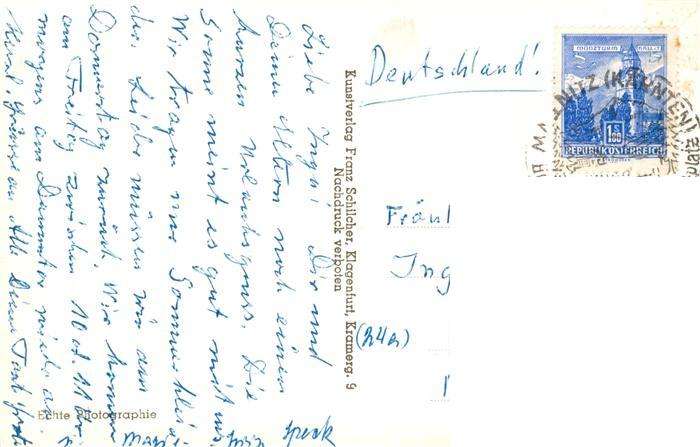 Liebe Inga! Dir und
Deinen Eltern noch einen
kurzen Urlaubsgruss. Die
Sonne meint es gut mit uns.
Wir tragen nur Sommerklei-
der. Leider müssen wir am
Donnerstag zurück. Wir kommen
am Freitag zwischen 10 od. 11 Uhr
morgens am Dammtor wieder an.
Grüsse an Alle Deine
Echte Photographie
Kunstverlag Franz Schilcher, Klagenfurt, Kramerg. 9
Nachdruck verboten
Deutschland!
Fräul
Ing
(24a)
1 S
80
REPUBLIK ÖSTERREICH
NITZ (KÄRNTEN)